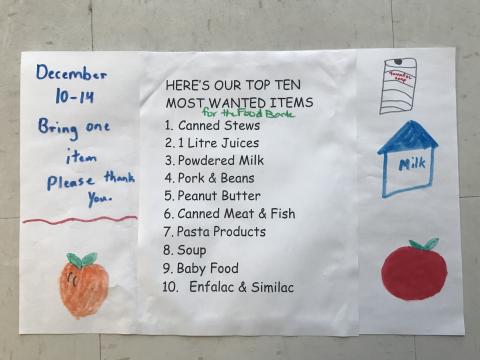 December
10-14
Bring one
item
Please thank
you.
HERE'S OUR TOP TEN
MOST WANTED ITEMS
for the Food Bank
1. Canned Stews
2. 1 Litre Juices
3. Powdered Milk
4. Pork & Beans
5. Peanut Butter
6. Canned Meat & Fish
7. Pasta Products
8. Soup
9. Baby Food
10. Enfalac & Similac
soup
Milk